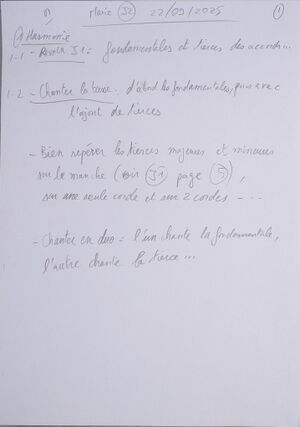 Marie J2 22/09/2025 1
Harmonie
1-1 - Revoir J1 = fondamentales et tierces des accords...
1-2 - Chanter la basse : d'abord les fondamentales, puis avec
l'ajout de tierces
- Bien repérer les tierces majeures et mineures
sur le manche (voir J1 page 5),
sur une seule corde et sur 2 cordes - ...
- Chanter en duo = l'un chante la fondamentale,
l'autre chante la tierce...